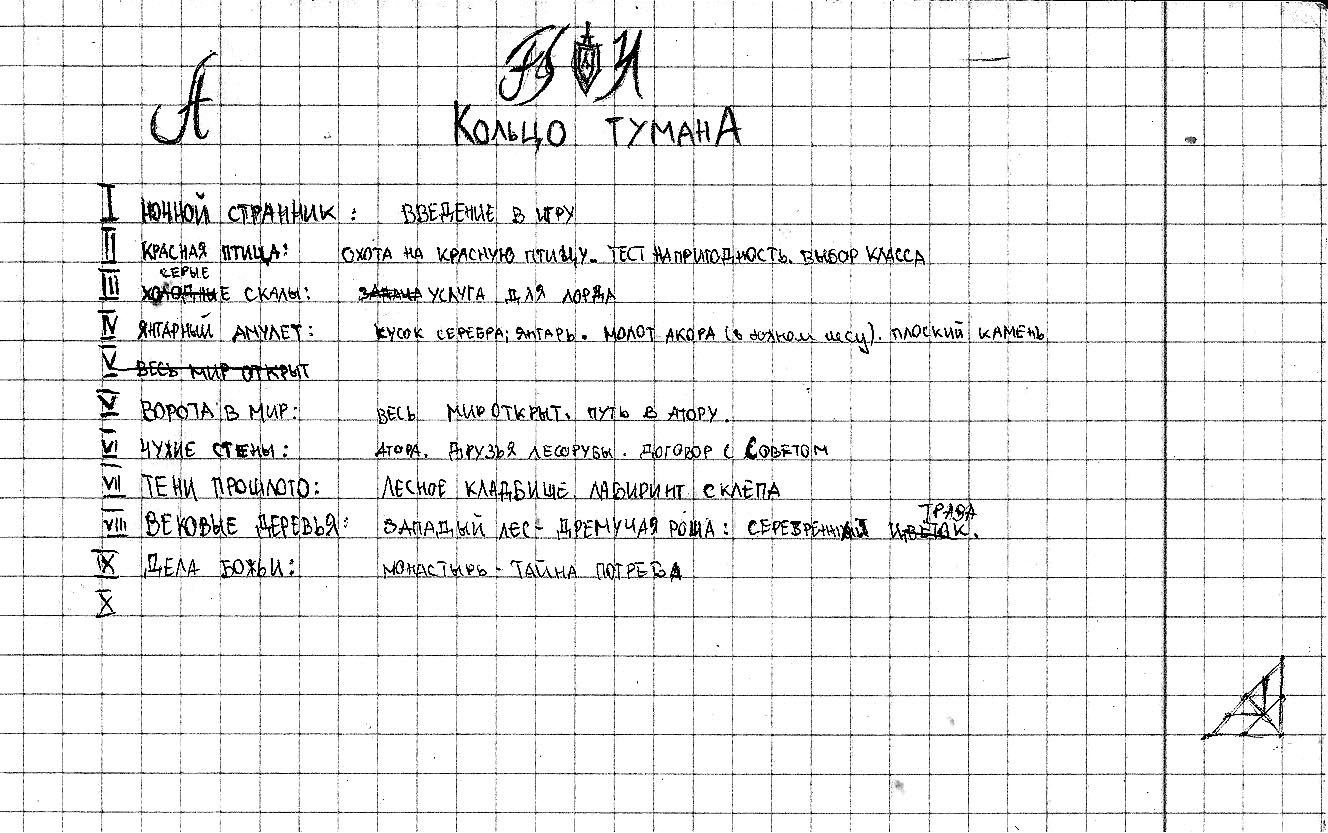 А
КОЛЬЦО ТУМАНА
I НОЧНОЙ СТРАННИК: ВВЕДЕНИЕ В ИГРУ
II КРАСНАЯ ПТИЦА: ОХОТА НА КРАСНУЮ ПТИЦУ. ТЕСТ НА ПРИГОДНОСТЬ. ВЫБОР КЛАССА
СЕРЫЕ
III ХОЛОДНЫЕ СКАЛЫ: ЗАДАЧА УСЛУГА ДЛЯ ЛОРДА
IV ЯНТАРНЫЙ АМУЛЕТ: КУСОК СЕРЕБРА; ЯНТАРЬ. МОЛОТ АКОРА (в южном лесу). ПЛОСКИЙ КАМЕНЬ
V ВЕСЬ МИР ОТКРЫТ
V ВОРОТА В МИР: ВЕСЬ МИР ОТКРЫТ. ПУТЬ В АТОРУ.
VI ЧУЖИЕ СТЕНЫ: АТОРА. ДРУЗЬЯ ЛЕСОРУБЫ. ДОГОВОР С СОВЕТОМ
VII ТЕНИ ПРОШЛОГО: ЛЕСНОЕ КЛАДБИЩЕ. ЛАБИРИНТ СКЛЕПА
ТРАВА
VIII ВЕКОВЫЕ ДЕРЕВЬЯ: ЗАПАДЫЙ ЛЕС - ДРЕМУЧАЯ РОЩА: СЕРЕБРЕННАЯ ЦВЕТОК.
IX ДЕЛА БОЖЬИ: МОНАСТЫРЬ - ТАЙНА ПОГРЕБА
X